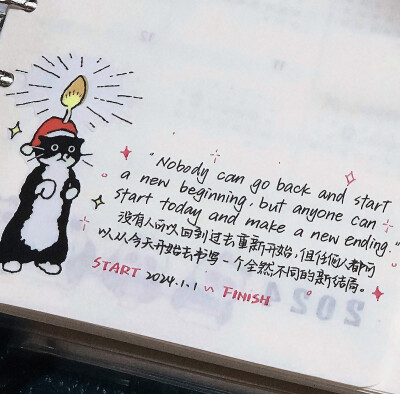 "Nobody can go back and start
a new beginning, but anyone can
start today and make a new ending."
没有人可以回到过去重新开始,但任何人都可
以从今天开始去书写一个全然不同的新结局。
START 2024.1.1 ~ FINISH
2024